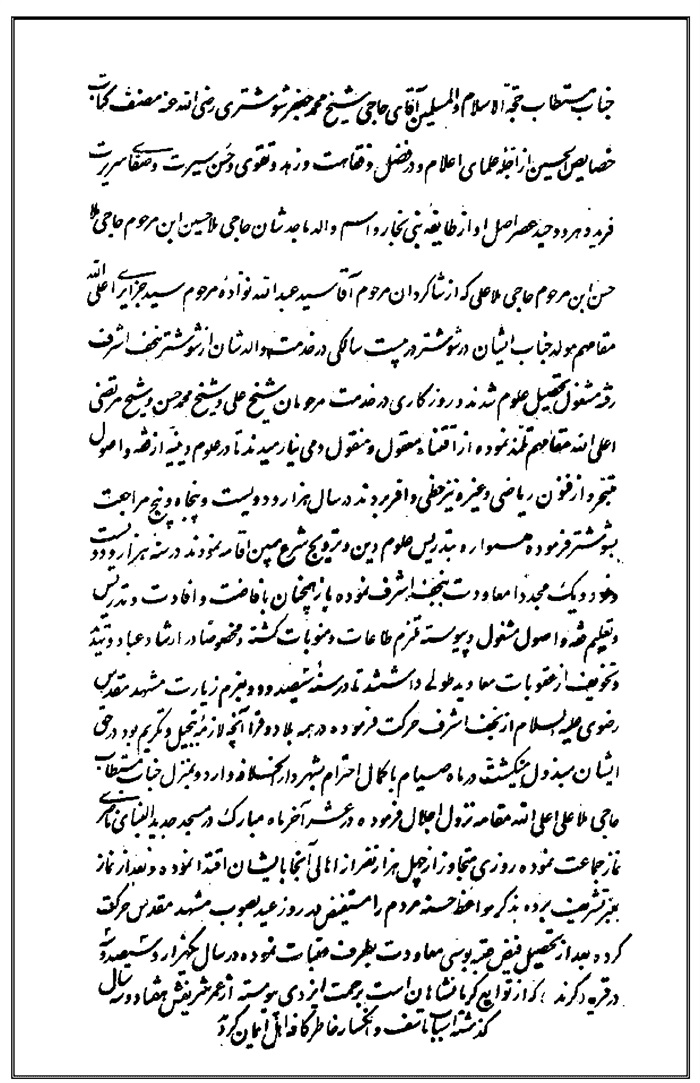 جناب مستطاب حجة الاسلام والمسلمین آقای حاجی شیخ محمد جعفر شوشتری رضی الله عنه مصنف کتاب
خصایص الحسین از اجله علمای اعلام و در فضل و فقاهت و زهد و تقوی و حسن سیرت و صفای سریرت
فرید دهر و وحید عصر اصل او از طایفه بنی نجار و اسم والد ماجدشان حاجی ملا حسین ابن مرحوم حاجی ملا
حسن ابن مرحوم حاجی ملا علی که از شاگردان مرحوم آقا سید عبدالله نواده مرحوم سید جزایری اعلی الله
مقامهم مولد جناب ایشان در شوشتر در بیست سالگی در خدمت والدشان از شوشتر بنجف اشرف
رفته مشغول تحصیل علوم شدند و روزگاری در خدمت مرحومان شیخ علی و شیخ محمد حسن و شیخ مرتضی
اعلی الله مقامهم تلمذ نموده از اقتناء معقول و منقول دمی نیارمیدند تا در علوم دینیه از فقه و اصول
متبحر و از فنون ریاضی و غیره نیز حظی وافر بردند در سال هزار و دویست و پنجاه و پنج مراجعت
بشوشتر فرموده همواره بتدریس علوم دین و ترویج شرع مبین اقامه نمودند در سنه هزار و دویست
و نود و یک مجددا معاودت بنجف اشرف نموده باز همچنان بافاضت و افادت و تدریس
و تعلیم فقه و اصول مشغول و پیوسته ملتزم طاعات و مثوبات گشته و مخصوصا در ارشاد عباد و تهدید
و تخویف از عقوبات معاد ید طولی داشتند تا در سنهٔ سیصد و دو بعزم زیارت مشهد مقدس
رضوی علیه السلام از نجف اشرف حرکت فرموده در همه بلاد و قرا آنچه لازمهٔ تبجیل و تکریم بود در حق
ایشان مبذول میگشت در ماه صیام با کمال احترام بشهر دارالخلافه وارد و بمنزل جناب مستطاب
حاجی ملا علی اعلی الله مقامه نزول اجلال فرموده در عشر آخر ماه مبارک در مسجد جدید البنای ناصری
نماز جماعت نموده روزی متجاوز از چهل هزار نفر از اهالی آنجا بایشان اقتدا نموده و بعد از نماز
بمنبر تشریف برده بذکر مواعظ حسنه مردم را مستفیض در روز عید بصوب مشهد مقدس حرکت
کرده بعد از تحصیل فیض عتبه بوسی معاودت بطرف عتبات نموده در سال یکهزار و سیصد و سه
در قریه کرند که از توابع کرمانشاهان است برحمت ایزدی پیوسته از عمر شریفش هفتاد و سه سال
گذشته اسباب تاسف و انکسار خاطر کافه اهل ایمان گردید